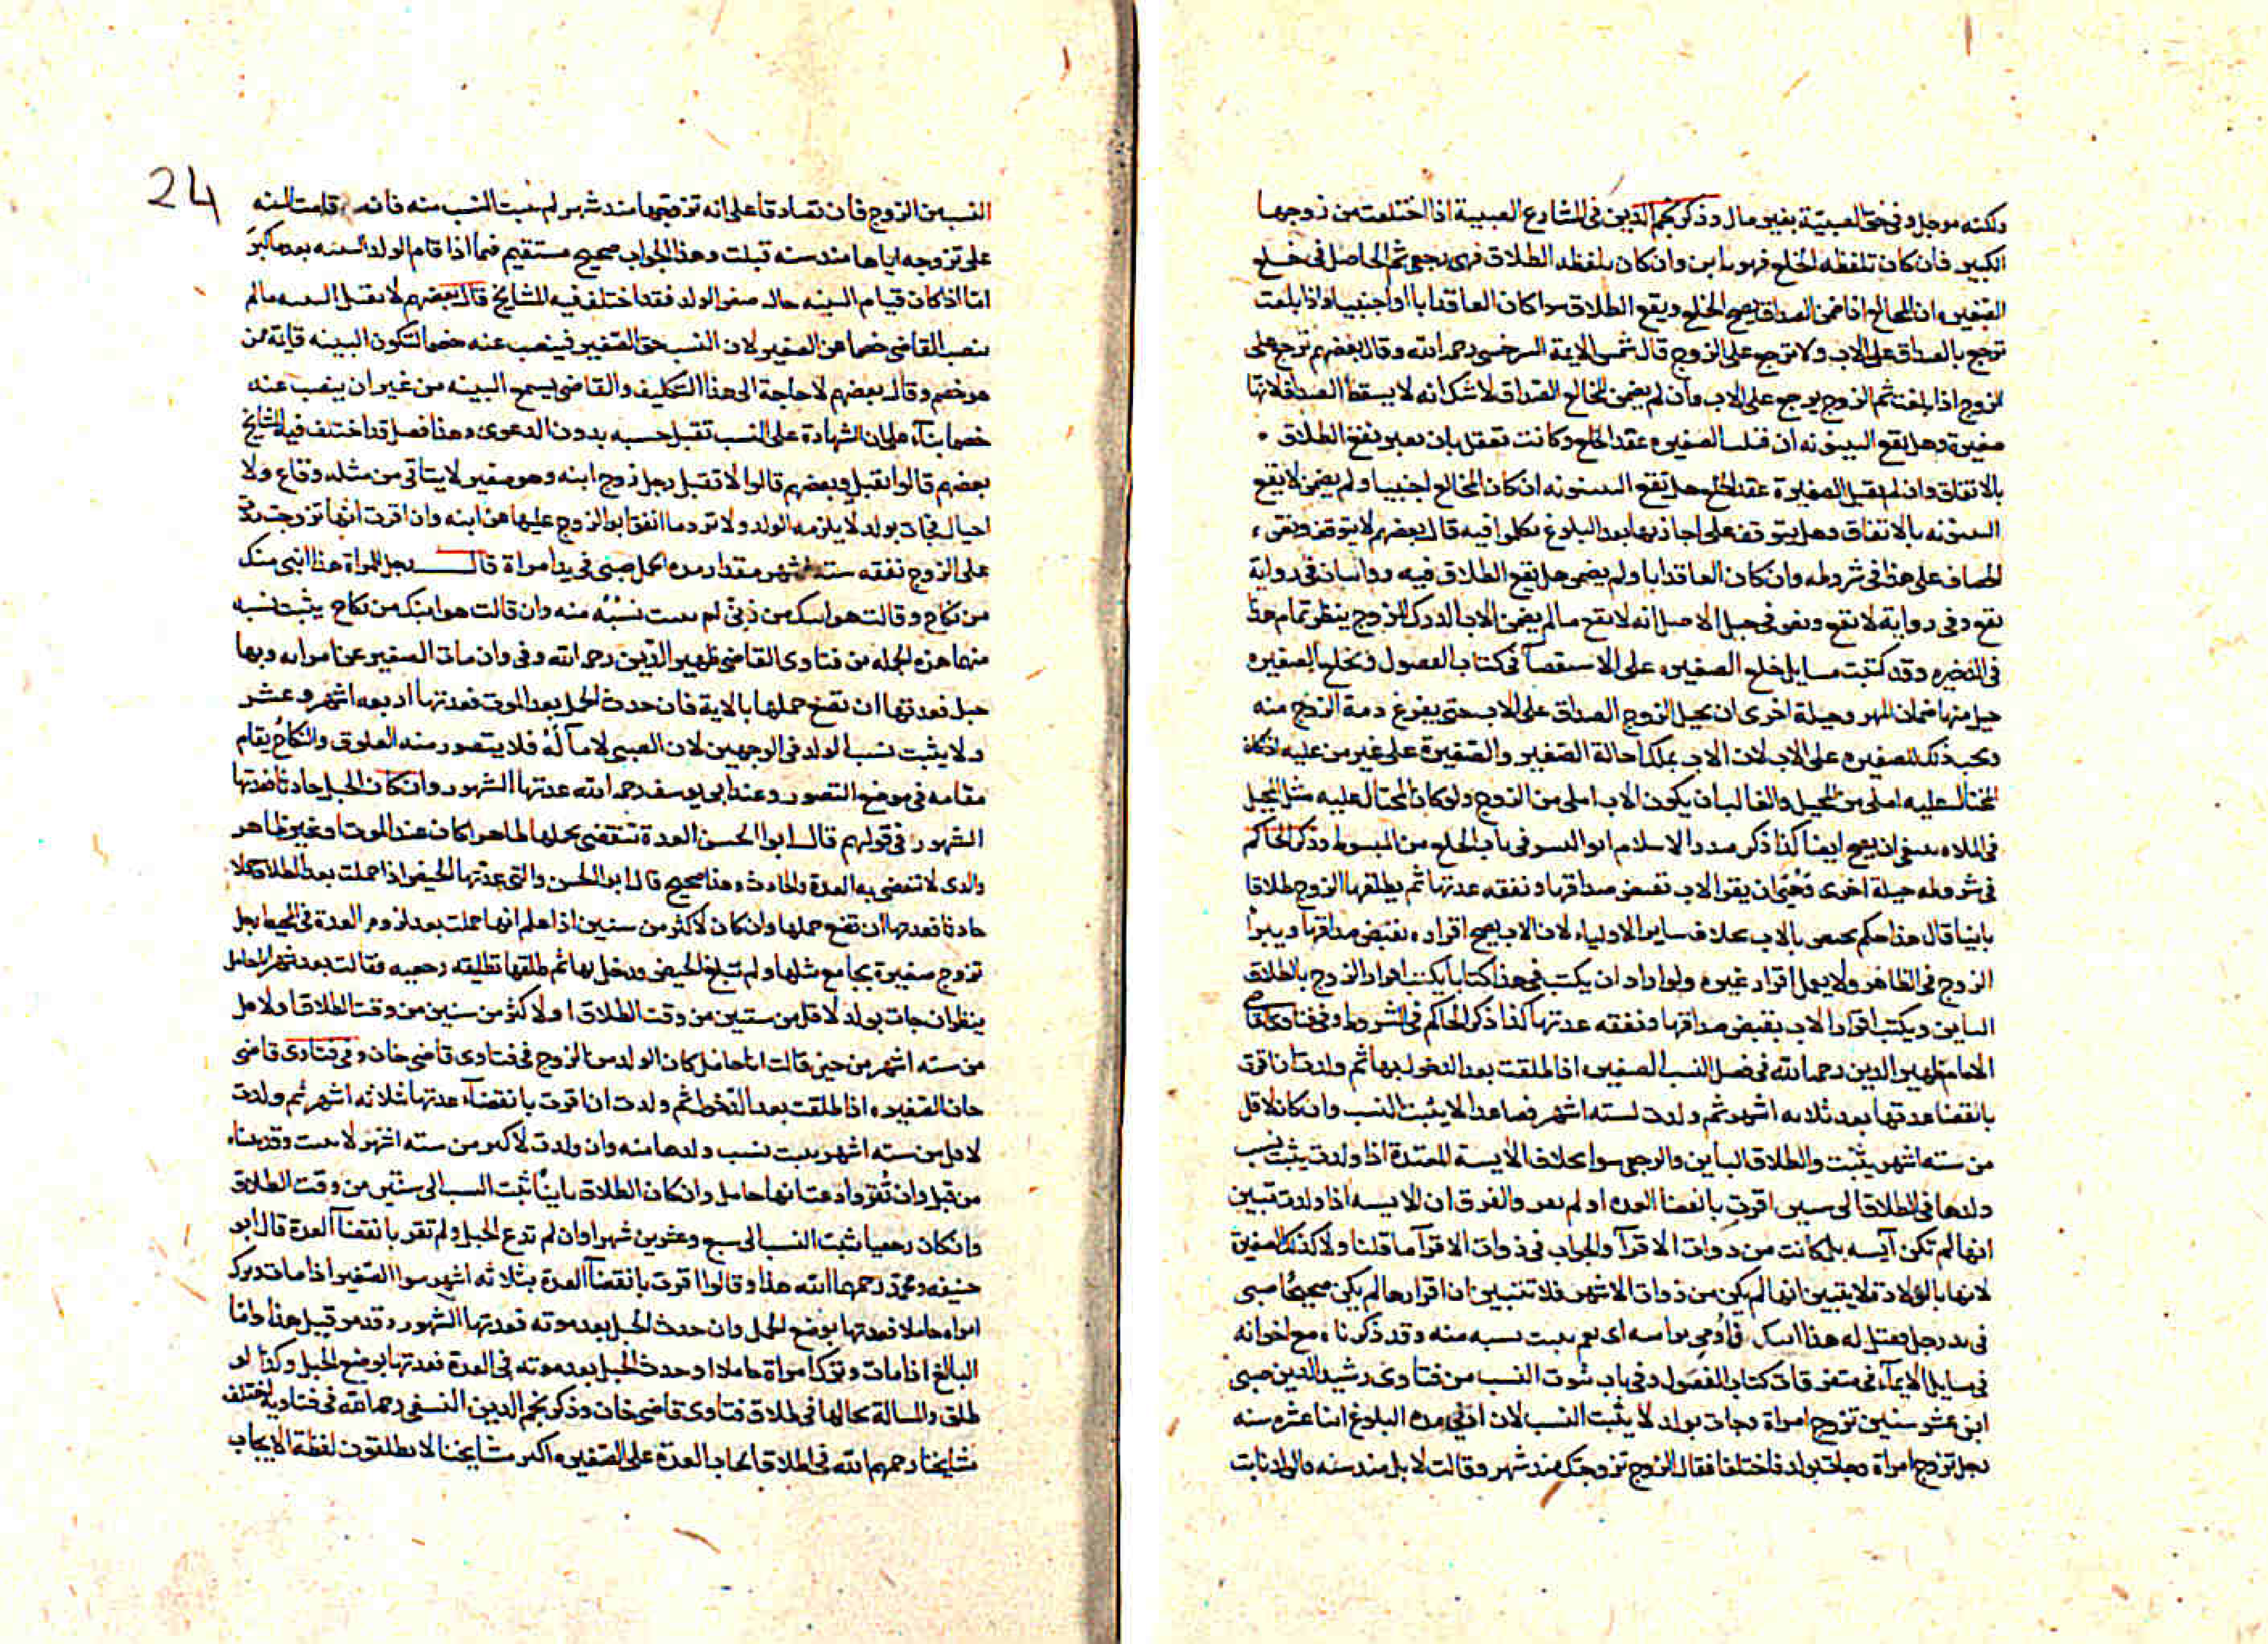 ولكنه موجل وفي حق الصبية بغير مال وذكر نجم الدين في المشارع الصبية اذا اختلعت من زوجها
الكبير فان كان بلفظة الخلع فهو باين وان كان بلفظ الطلاق فهي رجعي ثم الحاصل في خلع
الصغيره ان المخالع اذا ضمن الصداق يصح الخلع ويقع الطلاق سوا كان العاقد ابا او اجنبيا واذا بلغت
ترجع بالصداق على الاب ولا ترجع على الزوج قال شمس الايمة السرخسي رحمه الله وقال بعضهم ترجع على
الزوج اذا بلغت ثم الزوج يرجع على الاب وان لم يضمن المخالع الصداق لا شك انه لا يسقط الصداق لانها
صغيرة وهل تقع البينونه ان قبلت الصغيره عقد الخلع وكانت تعقل بان تعبر تقع الطلاق
بالاتفاق وان لم تقبل الصغيرة عقد الخلع هل تقع البينونه ان كان المخالع اجنبيا ولم يضمن لا يقع
البينونه بالاتفاق وهل يتوقف على اجازتها بعد البلوغ تكلموا فيه قال بعضهم لا يتوقف ونص
الخصاف على هذا في شروطه وان كان العاقد ابا ولم يضمن هل يقع الطلاق فيه روايتان في رواية
تقع وفي رواية لا تقع ونص في حيل الاصل انه لا تقع ما لم يضمن الاب الدرك للزوج ينظر تمام هذا
في الذخيره وقد كتبت مسايل خلع الصغيره على الاستقصآ في كتاب الفصول وبخلع الصغيره
حيل منها ضمان المهر وحيلة اخرى ان يحيل الزوج الصداق على الاب حتى يفرغ ذمة الزوج منه
ويجب ذلك للصغيره على الاب لان الاب يملك احالة الصغير والصغيرة على غير من عليه اذا كان
المحتال عليه املى من المحيل والغالب ان يكون الاب املى من الزوج ولو كان المحتال عليه مثل المحيل
في الملاه ينبغي ان يصح ايضا كذا ذكر صدر الاسلام ابو اليسر في باب الخلع من المبسوط وذكر الحاكم
في شروطه حيلة اخرى وهي ان يقر الاب بقبض صداقها ونفقه عدتها ثم يطلقها الزوج طلاقا
باينا قال هذا حكم يختص بالاب بخلاف ساير الاولياء لان الاب يصح اقراره بقبض صداقها ويبرأ
الزوج في الظاهر ولا يعمل اقرار غيره ولو اراد ان يكتب في هذا كتابا يكتب اقرار الزوج بالطلاق
الباين ويكتب اقرار الاب بقبض صداقها ونفقه عدتها كذا ذكر الحاكم في الشروط وفي فتاوى القاضي
الامام ظهير الدين رحمه الله في فصل النسب الصغيره اذا طلقت بعد الدخول بها ثم ولدت ان اقرت
بانقضا عدتها بعد ثلاثه اشهر ثم ولدت لسته اشهر فصاعدا لا يثبت النسب وان كان لاقل
من سته اشهر يثبت والطلاق الباين والرجعي سوا بخلاف الايسة المعتدة اذا ولدت يثبت نسب
ولدها في الطلاق الى سنتين اقرت بانقضا العده او لم تقر والفرق ان الايسه اذا ولدت تبين
انها لم تكن آيسه بل كانت من ذوات الاقرآ والجواب في ذوات الاقرآ ما قلنا ولا كذلك الصغيرة
لانها بالولادة لا يتبين انها لم تكن من ذوات الاشهر فلا تتبين ان اقرارها لم يكن صحيحا صبي
في يد رجل فقيل له هذا ابنك فاومى براسه اي نعم يثبت نسبه منه وقد ذكرناه مع اخواته
في مسايل الايمآء في متفرقات كتاب الفصول وفي باب ثبوت النسب من فتاوى رشيد الدين صبي
ابن عشر سنين تزوج امراة فجات بولد لا يثبت النسب لان ادنى مده البلوغ اثنا عشره سنه
رجل تزوج امراة فجات بولد فاختلفا فقال الزوج تزوجتك منذ شهر وقالت لا بل منذ سنه فالولد ثابت
24
النسب من الزوج فان تصادقا على انه تزوجها منذ شهر لم يثبت النسب منه فانه قامت البينه
على تزوجه اياها منذ سنه قبلت وهذا الجواب صحيح مستقيم فيما اذا قام الولد البينه بعدما كبر
اما اذا كان قيام البينه حال صغر الولد فقد اختلف فيه المشايخ قال بعضهم لا تقبل البينه ما لم
ينصب القاضي خصما عن الصغير لان النسب حق الصغير فينصب عنه خصما لتكون البينه قايمة ممن
هو خصم وقال بعضهم لا حاجة الى هذا التكليف والقاضي يسمع البينه من غير ان ينصب عنه
خصما بنآء على ان الشهادة على النسب تقبل حسبه بدون الدعوى وهذا فصل قد اختلف فيه المشايخ
بعضهم قالوا تقبل وبعضهم قالوا لا تقبل رجل زوج ابنه وهو صغير لا يتاتى من مثله وقاع ولا
احبال فجات بولد لا يلزمه الولد ولا ترد ما انفق ابو الزوج عليها من ابنه وان اقرت انها تزوجت ردت
على الزوج نفقه سته اشهر مقدار مده الحمل صبي في يد امراة قال رجل للمراة هذا ابني منك
من نكاح وقالت هو ابنك من زنى لم يثبت نسبه منه وان قالت هو ابنك من نكاح يثبت نسبه
منهما هذه الجمله من فتاوى القاضي ظهير الدين رحمه الله وفي وان مات الصغير عن امراته وبها
حبل فعدتها ان تضع حملها بالاية فان حدث الحبل بعد الموت فعدتها اربعه اشهر وعشر
ولا يثبت نسب الولد في الوجهين لان الصبي لا مآ له فلا يتصور منه العلوق والنكاح يقام
مقامه في موضع التصور وعند ابي يوسف رحمه الله عدتها الشهور وان كان الحبل حادثا فعدتها
الشهور في قولهم قال ابو الحسن العدة تنقضي بحملها لما ظهر كان عند الموت او غير ظاهر
والذي لا تنقضي به العدة والحادث وهذا صحيح قال ابو الحسن والتي عدتها الحيض اذا حملت بعد الطلاق حملا
حادثا فعدتها ان تضع حملها وان كان لاكثر من سنين اذا علم انها حملت بعد لزوم العدة في المحيط رجل
تزوج صغيرة يجامع مثلها ولم تبلغ الحيض ودخل بها ثم طلقها تطليقه رجعيه فقالت بعد شهر انا حامل
ينظر ان جات بولد لاقل من سنتين من وقت الطلاق او لاكثر من سنين من وقت الطلاق او لاقل
من سته اشهر من حين قالت انا حامل كان الولد من الزوج في فتاوى قاضي خان وفي فتاوى قاضي
خان الصغيره اذا طلقت بعد الدخول ثم ولدت ان اقرت بانقضآء عدتها بثلاثه اشهر ثم ولدت
لاقل من سته اشهر يثبت نسب ولدها منه وان ولدت لاكثر من سته اشهر لا يثبت وقد بيناه
من قبل وان لم تقر وادعت انها حامل وان كان الطلاق باينا ثبت النسب الى سنتين من وقت الطلاق
وان كان رجعيا ثبت النسب الى سبع وعشرين شهرا وان لم تدع الحبل ولم تقر بانقضآ العدة قال ابو
حنيفه ومحمد رحمهما الله هذا وقالوا اقرت بانقضآ العدة بثلاثه اشهر سوا الصغير اذا مات وترك
امراه حاملا فعدتها بوضع الحمل وان حدث الحبل بعد موته فعدتها الشهور وقد مر قبيل هذا واما
البالغ اذا مات وترك امراة حاملا او حدث الحبل بعد موته في العدة فعدتها بوضع الحبل وكذا لو
طلق والمسالة بحالها في طلاق فتاوى قاضي خان وذكر نجم الدين النسفي رحمه الله في فتاويه اختلف
مشايخنا رحمهم الله في اطلاق ايجاب العدة على الصغيره اكثر مشايخنا لا يطلقون لفظة الايجاب